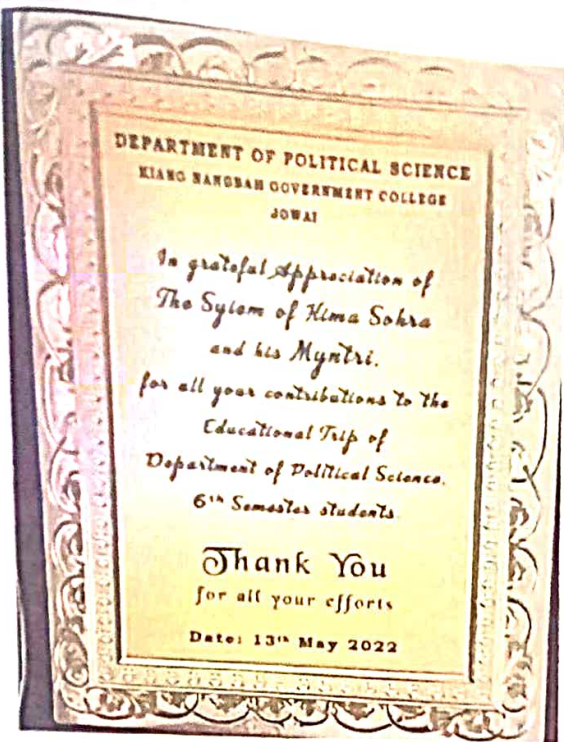 DEPARTMENT OF POLITICAL SCIENCE
KIANG NANGBAH GOVERNMENT COLLEGE
JOWAI
In grateful Appreciation of
The Syiem of Hima Sohra
and his Myntri.
for all your contributions to the
Educational Trip of
Department of Political Science.
6th Semester students.
Thank You
for all your efforts
Date: 13th May 2022